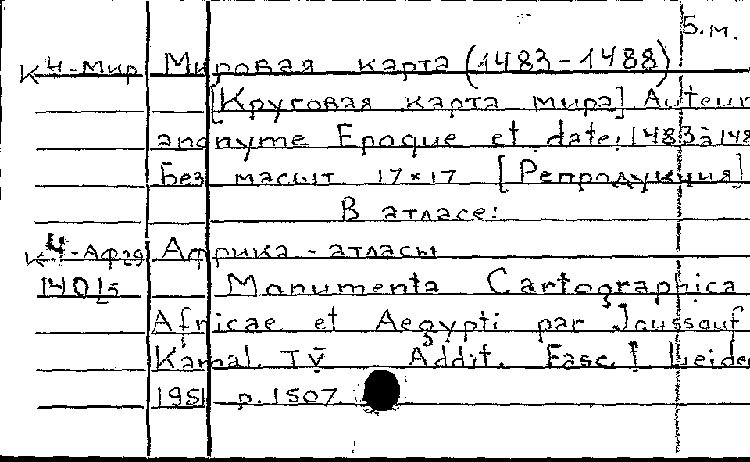 5.м.
К4-Мир Мировая карта (1483-1488)
[Круговая карта мира] Auteur
anonyme Epoque et date: 1483à148
Без масшт 17×17 [Репродукция]
В атласе:
К4-Афр Африка - атласы
Monumenta Cartographica
Africae et Aegypti par Joussouf
Kamal. T V Addit. Fasc. I Leide
1951 p. 1507.